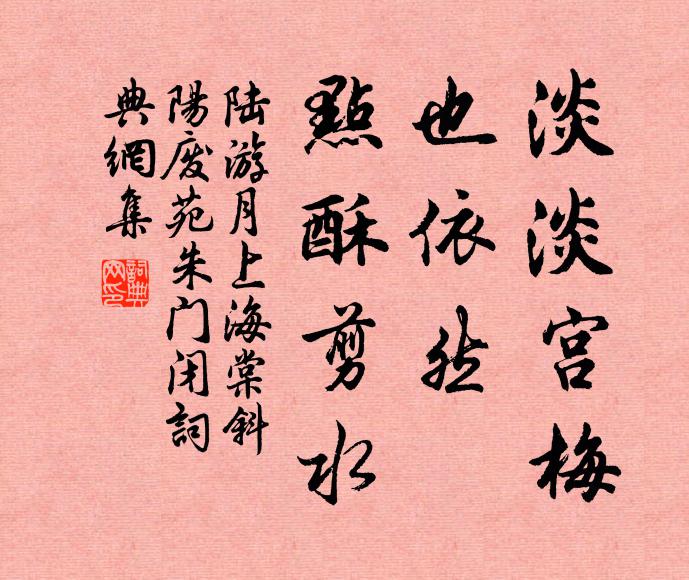 淡淡宫梅
也依然
點酥剪水
陆游月上海棠斜
陽废苑朱门闭詞
典網集
詞典
网印